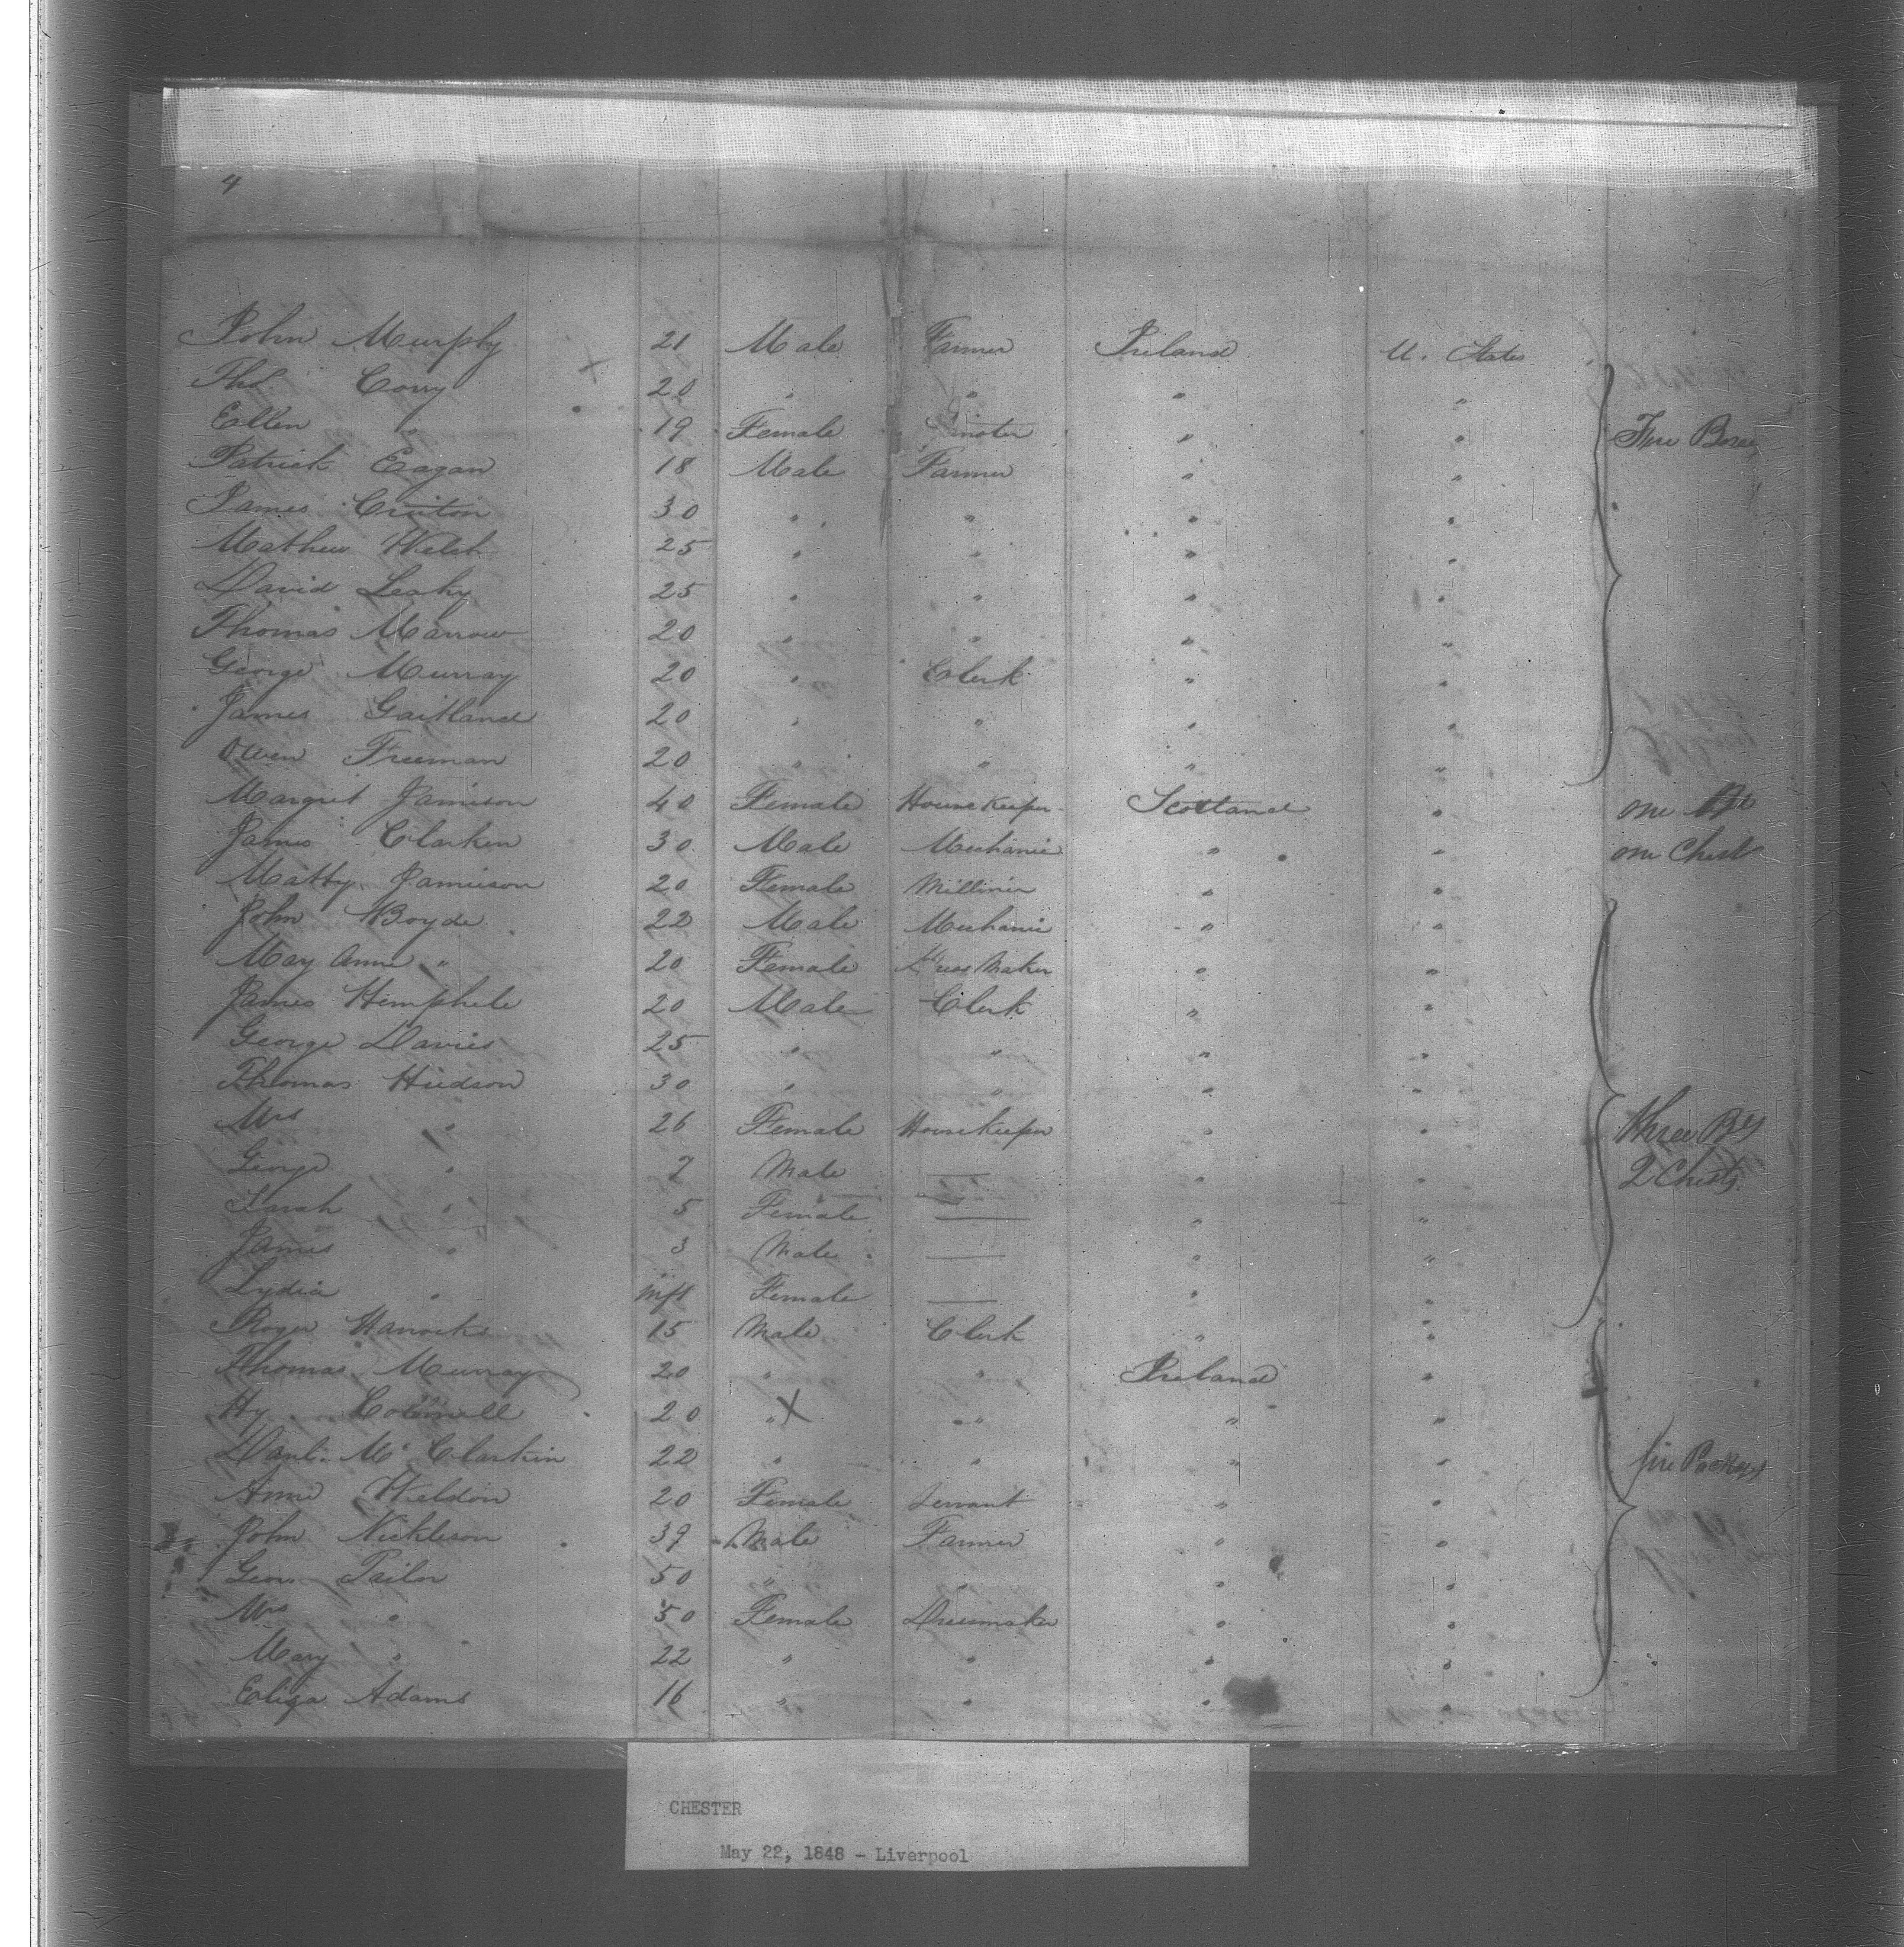 4
John Murphy 21 Male Farmer Ireland U. States
Thos. Corry 20 " " " "
Eallen " 19 Female " "
Patrick Eagan 18 Male Farmer " "
James Cruiton 30 " " " "
Mathew Welsh 25 " " " "
David Leahy 25 " " " "
Thomas Marrow 20 " " " "
George Murray 20 " Clerk " "
James Gaitland 20 " " " "
Owen Freeman 20 " " " "
Margret Jamison 40 Female House Keeper Scotland " one
James Clarken 30 Male Mechanic " " one Chest
Matty Jamieson 20 Female Milliner " "
John Boyde 22 Male Mechanic " "
May Anne " 20 Female Dress Maker " "
James Himphele 20 Male Clerk " "
George Davies 25 " " " "
Thomas Hudson 30 " " " "
Mrs " 26 Female House Keeper " " three Bxs
George " 7 Male — " " 2 Chests
Sarah " 5 Female — " "
James " 3 Male — " "
Lydia " inft Female — " "
Roger 15 Male Clerk " "
Thomas Murray 20 " " Ireland "
Hy 20 " X " " "
Danl. Mc Clarkin 22 " " " "
Anne Weldon 20 Female Servant " "
John Nickleson 39 Male Farmer " "
Geor Tailor 50 " " " "
Mrs " 50 Female Dressmaker " "
Mary " 22 " " " "
Eliza Adams 16 " " " "
CHESTER
May 22, 1848 - Liverpool